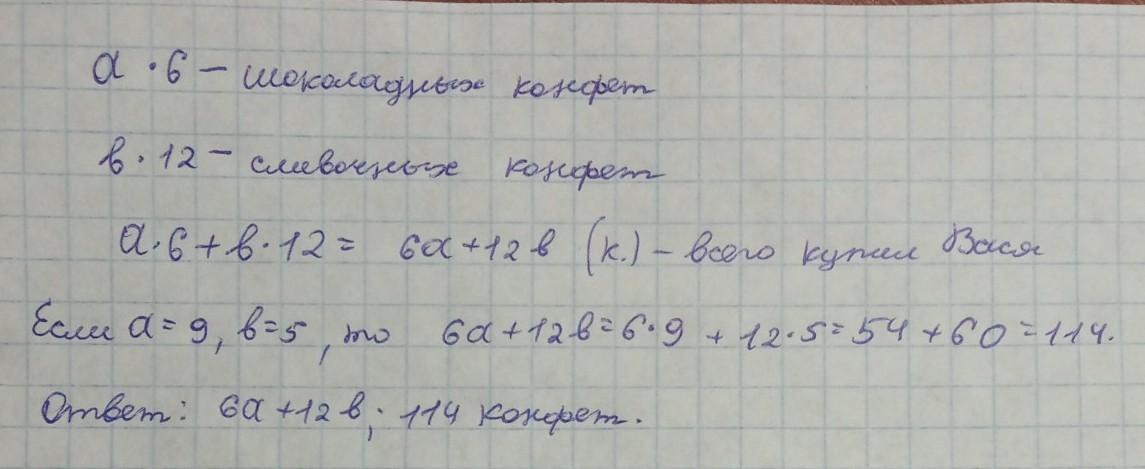 а · 6 – шоколадных конфет
в · 12 – сливочных конфет
а·6 + в·12 = 6а + 12в (к.) – всего купил Вася
Если а = 9, в = 5, то 6а + 12в = 6·9 + 12·5 = 54 + 60 = 114.
Ответ: 6а + 12в; 114 конфет.